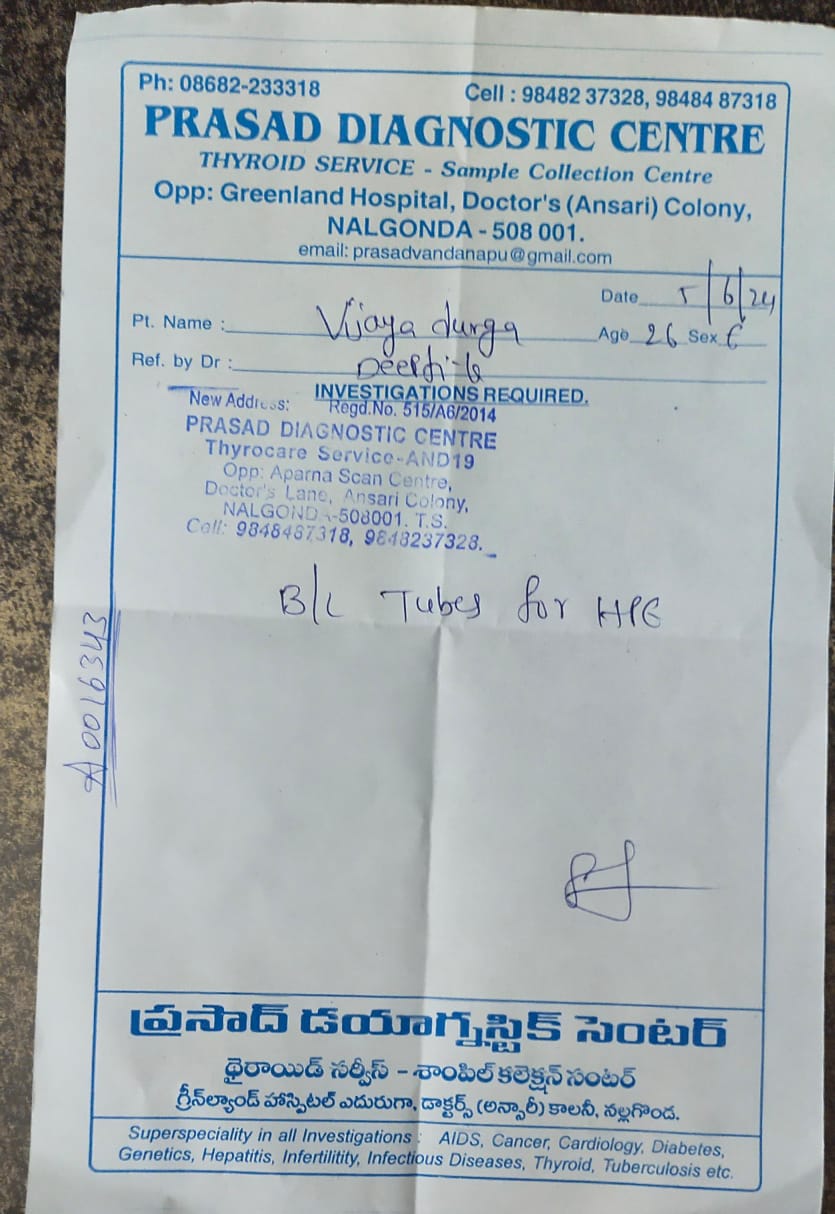 Ph: 08682-233318 Cell : 98482 37328, 98484 87318
PRASAD DIAGNOSTIC CENTRE
THYROID SERVICE - Sample Collection Centre
Opp: Greenland Hospital, Doctor's (Ansari) Colony,
NALGONDA - 508 001.
email: prasadvandanapu@gmail.com
Date 5/6/24
Pt. Name : Vijaya durga Age 26 Sex F
Ref. by Dr :
INVESTIGATIONS REQUIRED.
New Address: Regd.No. 515/A6/2014
PRASAD DIAGNOSTIC CENTRE
Thyrocare Service-AND19
Opp: Aparna Scan Centre,
Doctor's Lane, Ansari Colony,
NALGONDA-508001. T.S.
Cell: 9848487318, 9848237328.
B/L Tubes for HPE
A0016343
ప్రసాద్ డయాగ్నస్టిక్ సెంటర్
థైరాయిడ్ సర్వీస్ - శాంపిల్ కలెక్షన్ సంటర్
గ్రీన్‌ల్యాండ్ హాస్పిటల్ ఎదురుగా, డాక్టర్స్ (అన్సారీ) కాలనీ, నల్లగొండ.
Superspeciality in all Investigations : AIDS, Cancer, Cardiology, Diabetes,
Genetics, Hepatitis, Infertilitity, Infectious Diseases, Thyroid, Tuberculosis etc.